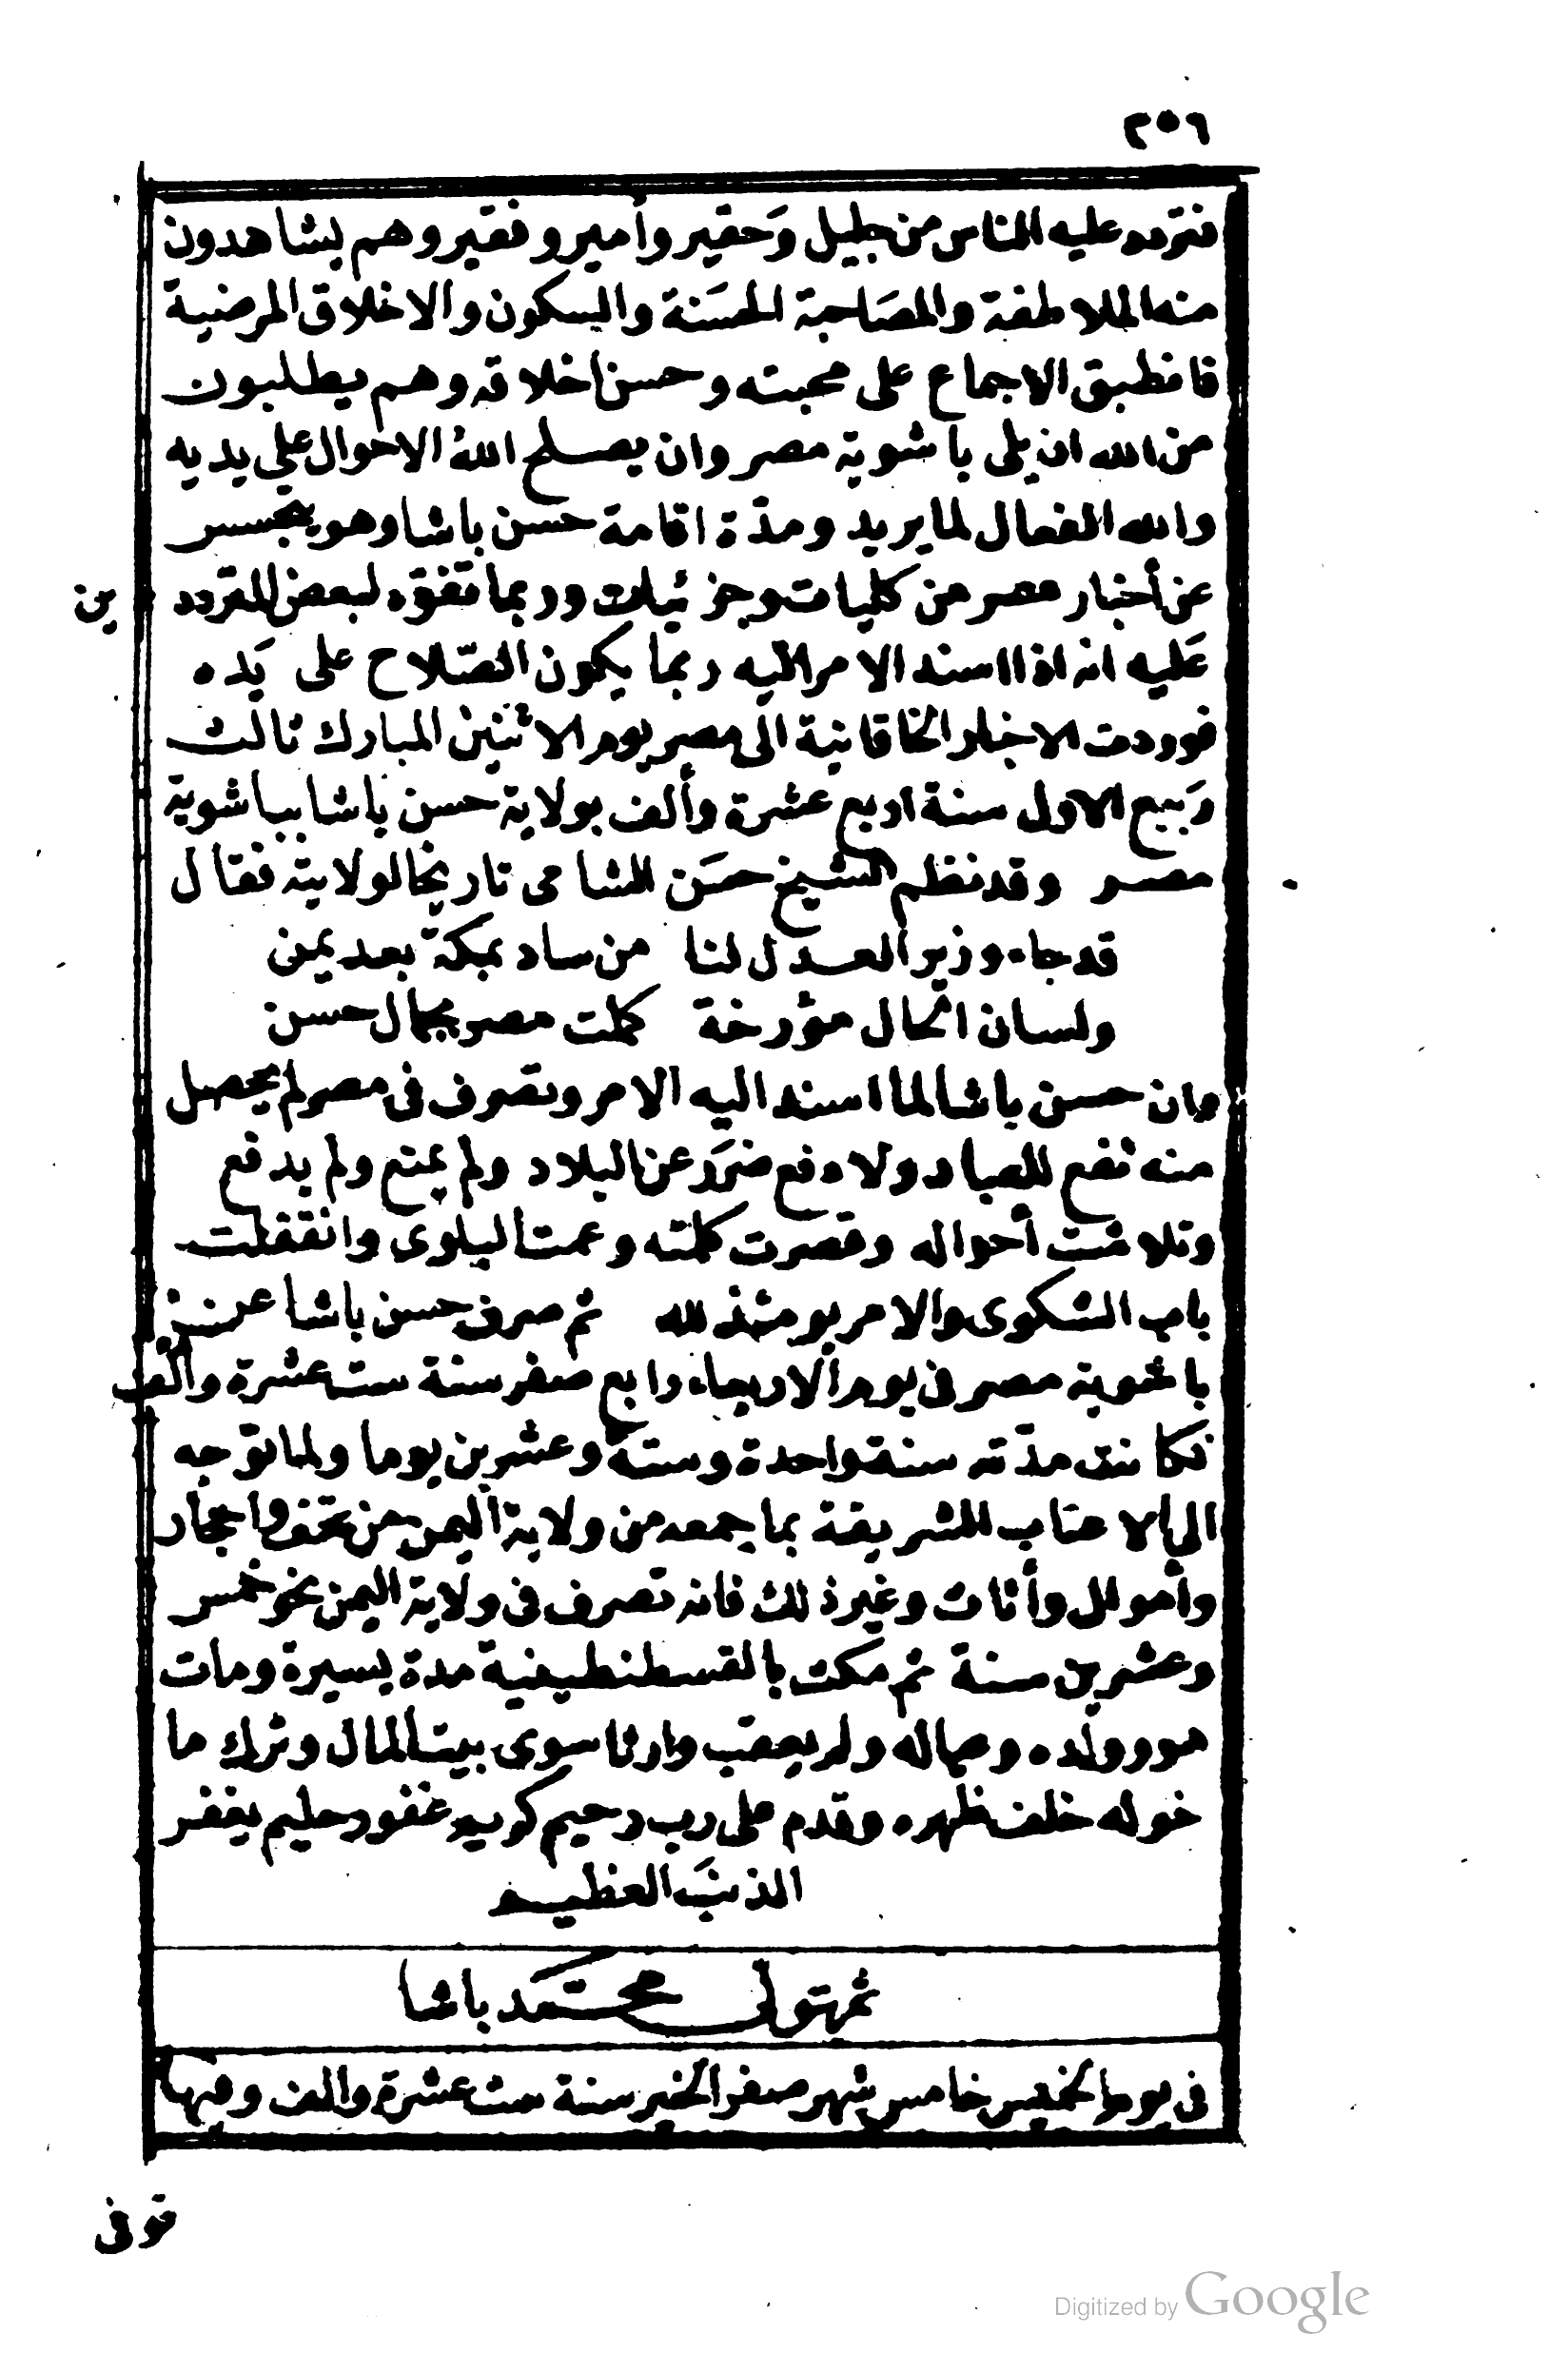 ٢٥٦
فتردد عليه الناس من جليل وَحقير وأمير وفقير وهم يشاهدون
منه الملاطفة والمصَاحبة الحسَنة والسكون والاخلاق المرضية
فانطبق الاجماع على محبته وحسن أخلاقه وهم يطلبون
من الله ان يلى باشوية مصر وان يصلح اللهُ الاحوال على يديه
والله الفعال لما يريد ومدّة اقامة حسن باشا وهو يتجسس
عن أخبار مصر من كليات وجزئيات وربما تفوّه لبعض المتردد ين
عَليه انه اذا اسند الامر اليه ربما يكون الصّلاح على يَده
فوردت الاخبار الخاقانية الى مصر يوم الاثنين المبارك ثالث
رَبيع الاول سنة اربع عشرة وألف بولاية حسن باشا بباشوية
مصر وقد نظم الشيخ حسَن الشامى تاريخا لولايته فقال
قد جاء وزير العدل لنا من ساد بمكة بعد يمن
ولسان الحال مؤرخة كملت مصر بجمال حسن
وان حسن باشا لما اسند اليه الامر وتصرف فى مصر لم يحصل
منه نفع للعباد ولا دفع ضرَر عن البلاد ولم يمنع ولم يدفع
وتلاشت أحواله وقصرت كلمته وعمت البلوى وانقفلت
باب الشكوى والامر يومئذ لله ثم صرف حسن باشا عن
باشوية مصر فى يوم الاربعاء رابع صفر سنة ست عشرة وألف
فكانت مدّته سنة واحدة وستة وعشرين يوما ولما توجه
الى الاعتاب الشريفة بما جمعه من ولاية اليمن من تحف واحجار
وأموال وأثاث وغير ذلك فانه تصرف فى ولاية اليمن نحو خمس
وعشرين سنة ثم مكث بالقسطنطينية مدة يسيرة ومات
هو وولده وعياله ولم يعقب وارثا سوى بيت المال وترك ما
خوله خلف ظهره وقدم على رب رحيم كريم غفور حليم يغفر
الذنبَ العظيم
ثم تولى محمّد باشا
فى يوم الخميس خامس شهر صفر الخير سنة ست عشرة والف وفيها
توفى
Digitized by Google